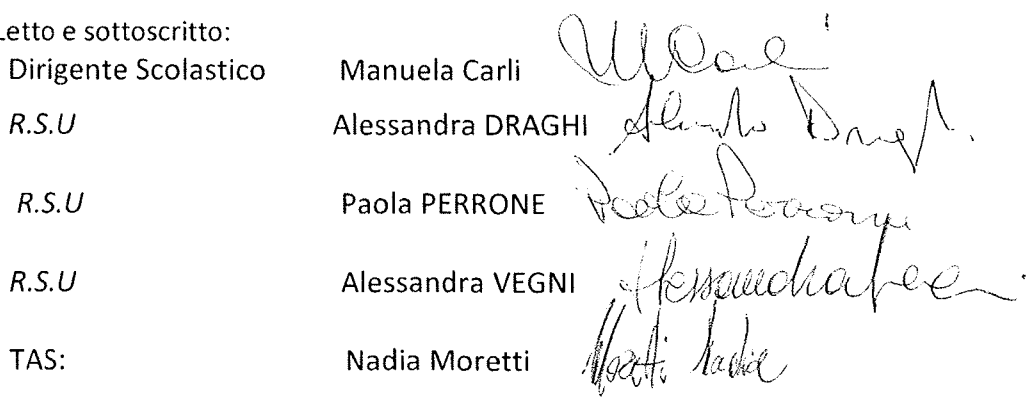 Letto e sottoscritto:
Dirigente Scolastico Manuela Carli MCarli
R.S.U Alessandra DRAGHI
R.S.U Paola PERRONE Paola Perrone
R.S.U Alessandra VEGNI Alessandra Vegni
TAS: Nadia Moretti Moretti Nadia